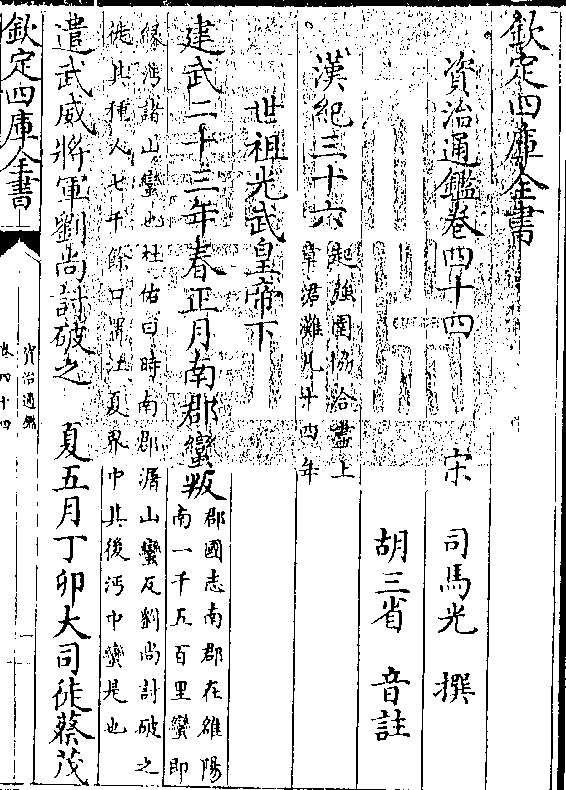 欽定四庫全書
資治通鑑卷四十四　宋　司馬光　撰
胡三省　音註
漢紀三十六
起強圉協洽盡上
章涒灘凡十四年
世祖光武皇帝下
建武二十三年春正月南郡蠻叛
郡國志南郡在雒陽
南一千五百里蠻即
緣沔諸山蠻也杜佑曰時南郡潳山蠻反劉尚討破之
徙其種人七千餘口置江夏界中其後沔中蠻是也
遣武威將軍劉尚討破之　夏五月丁卯大司徒蔡茂
欽定四庫全書
資治通鑑
卷四十四
一